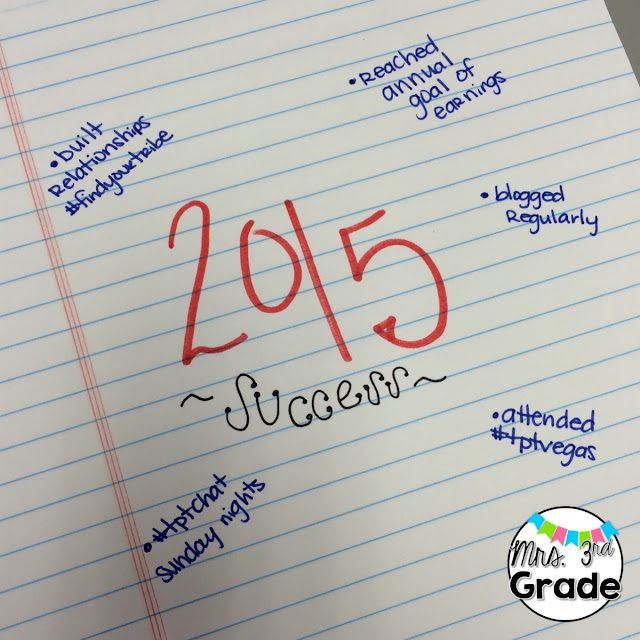 • Reached
annual
goal of
earnings
• built
Relationships
#findyourtribe
• blogged
Regularly
2015
~ success ~
• attended
#tptvegas
• #tptchat
Sunday nights
Mrs. 3rd
Grade